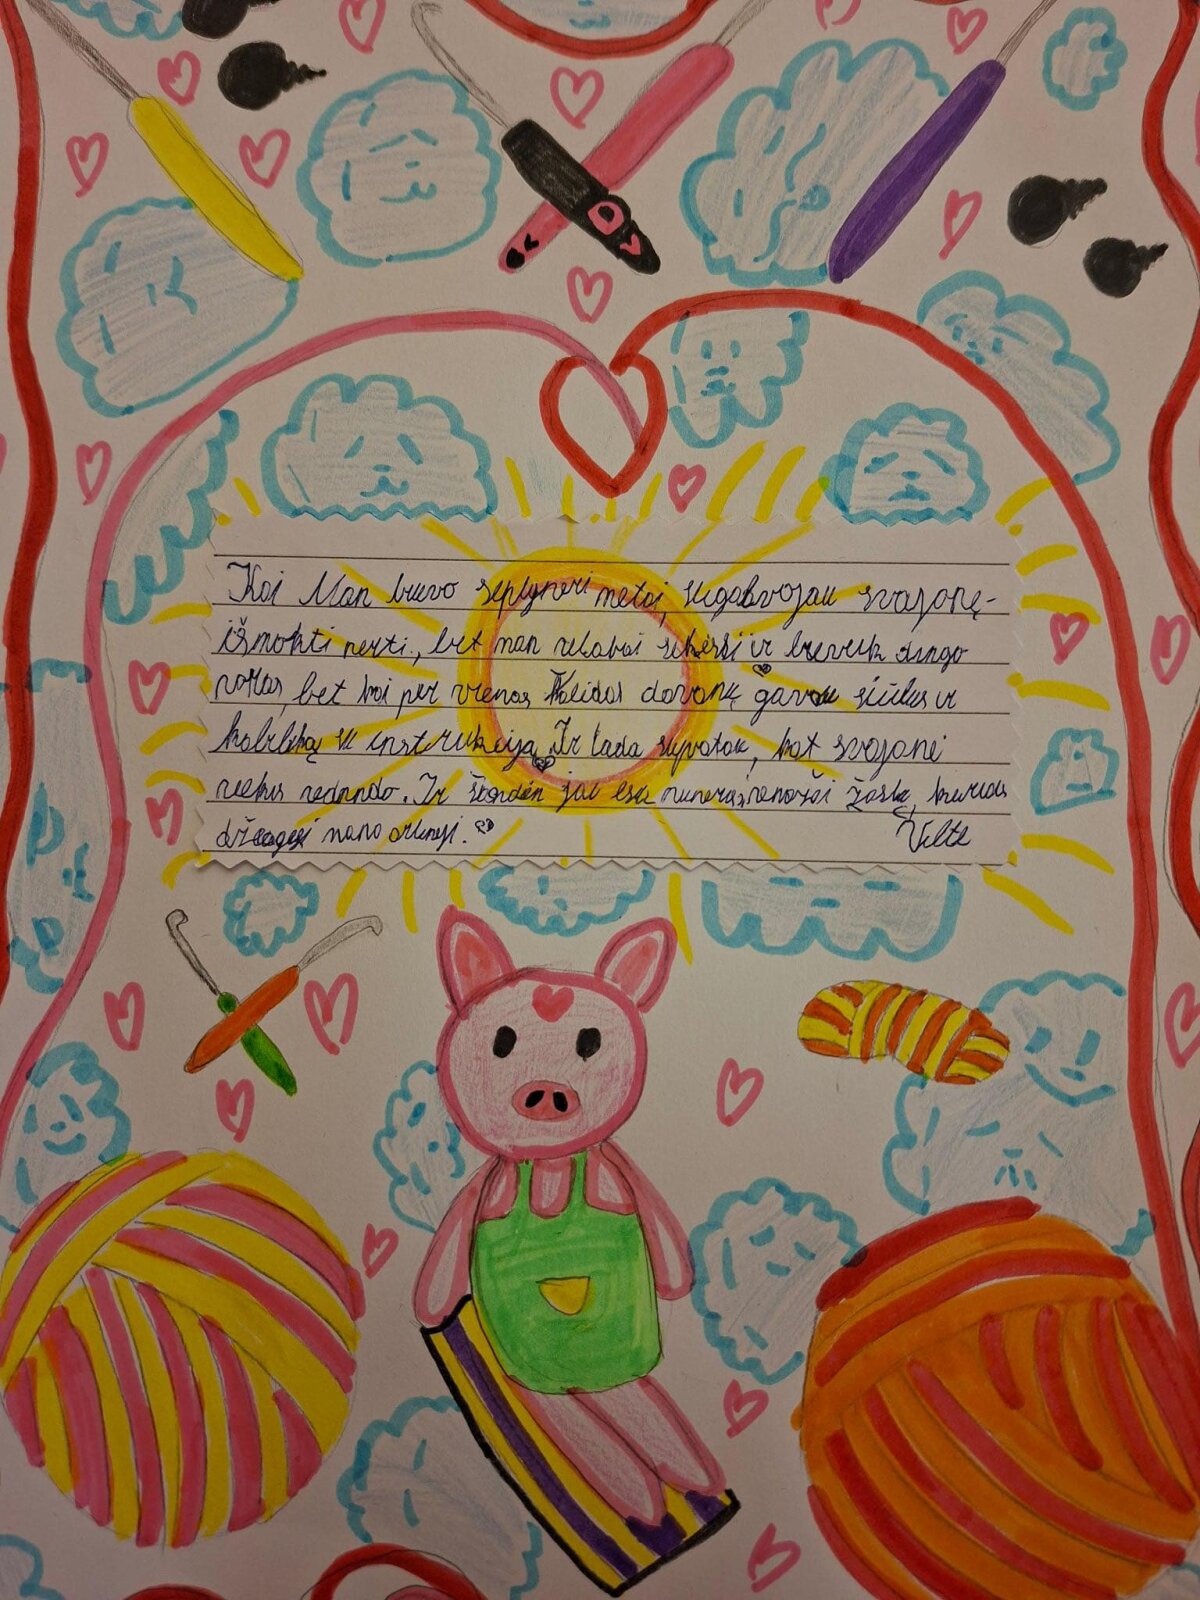 Kai Man buvo septyneri metai, sugalvojau svajonę-
išmokti nerti, bet man nelabai sekėsi ir beveik dingo
noras, bet kai per vienas Kalėdas dovanų gavau siūlus ir
kabliuką su instrukcija. Ir tada supratau, kad svajonė
niekur nedindo. Ir šiandien jau esu nunėrusi žaislų, kurias
džiaugiasi mano
Viltė